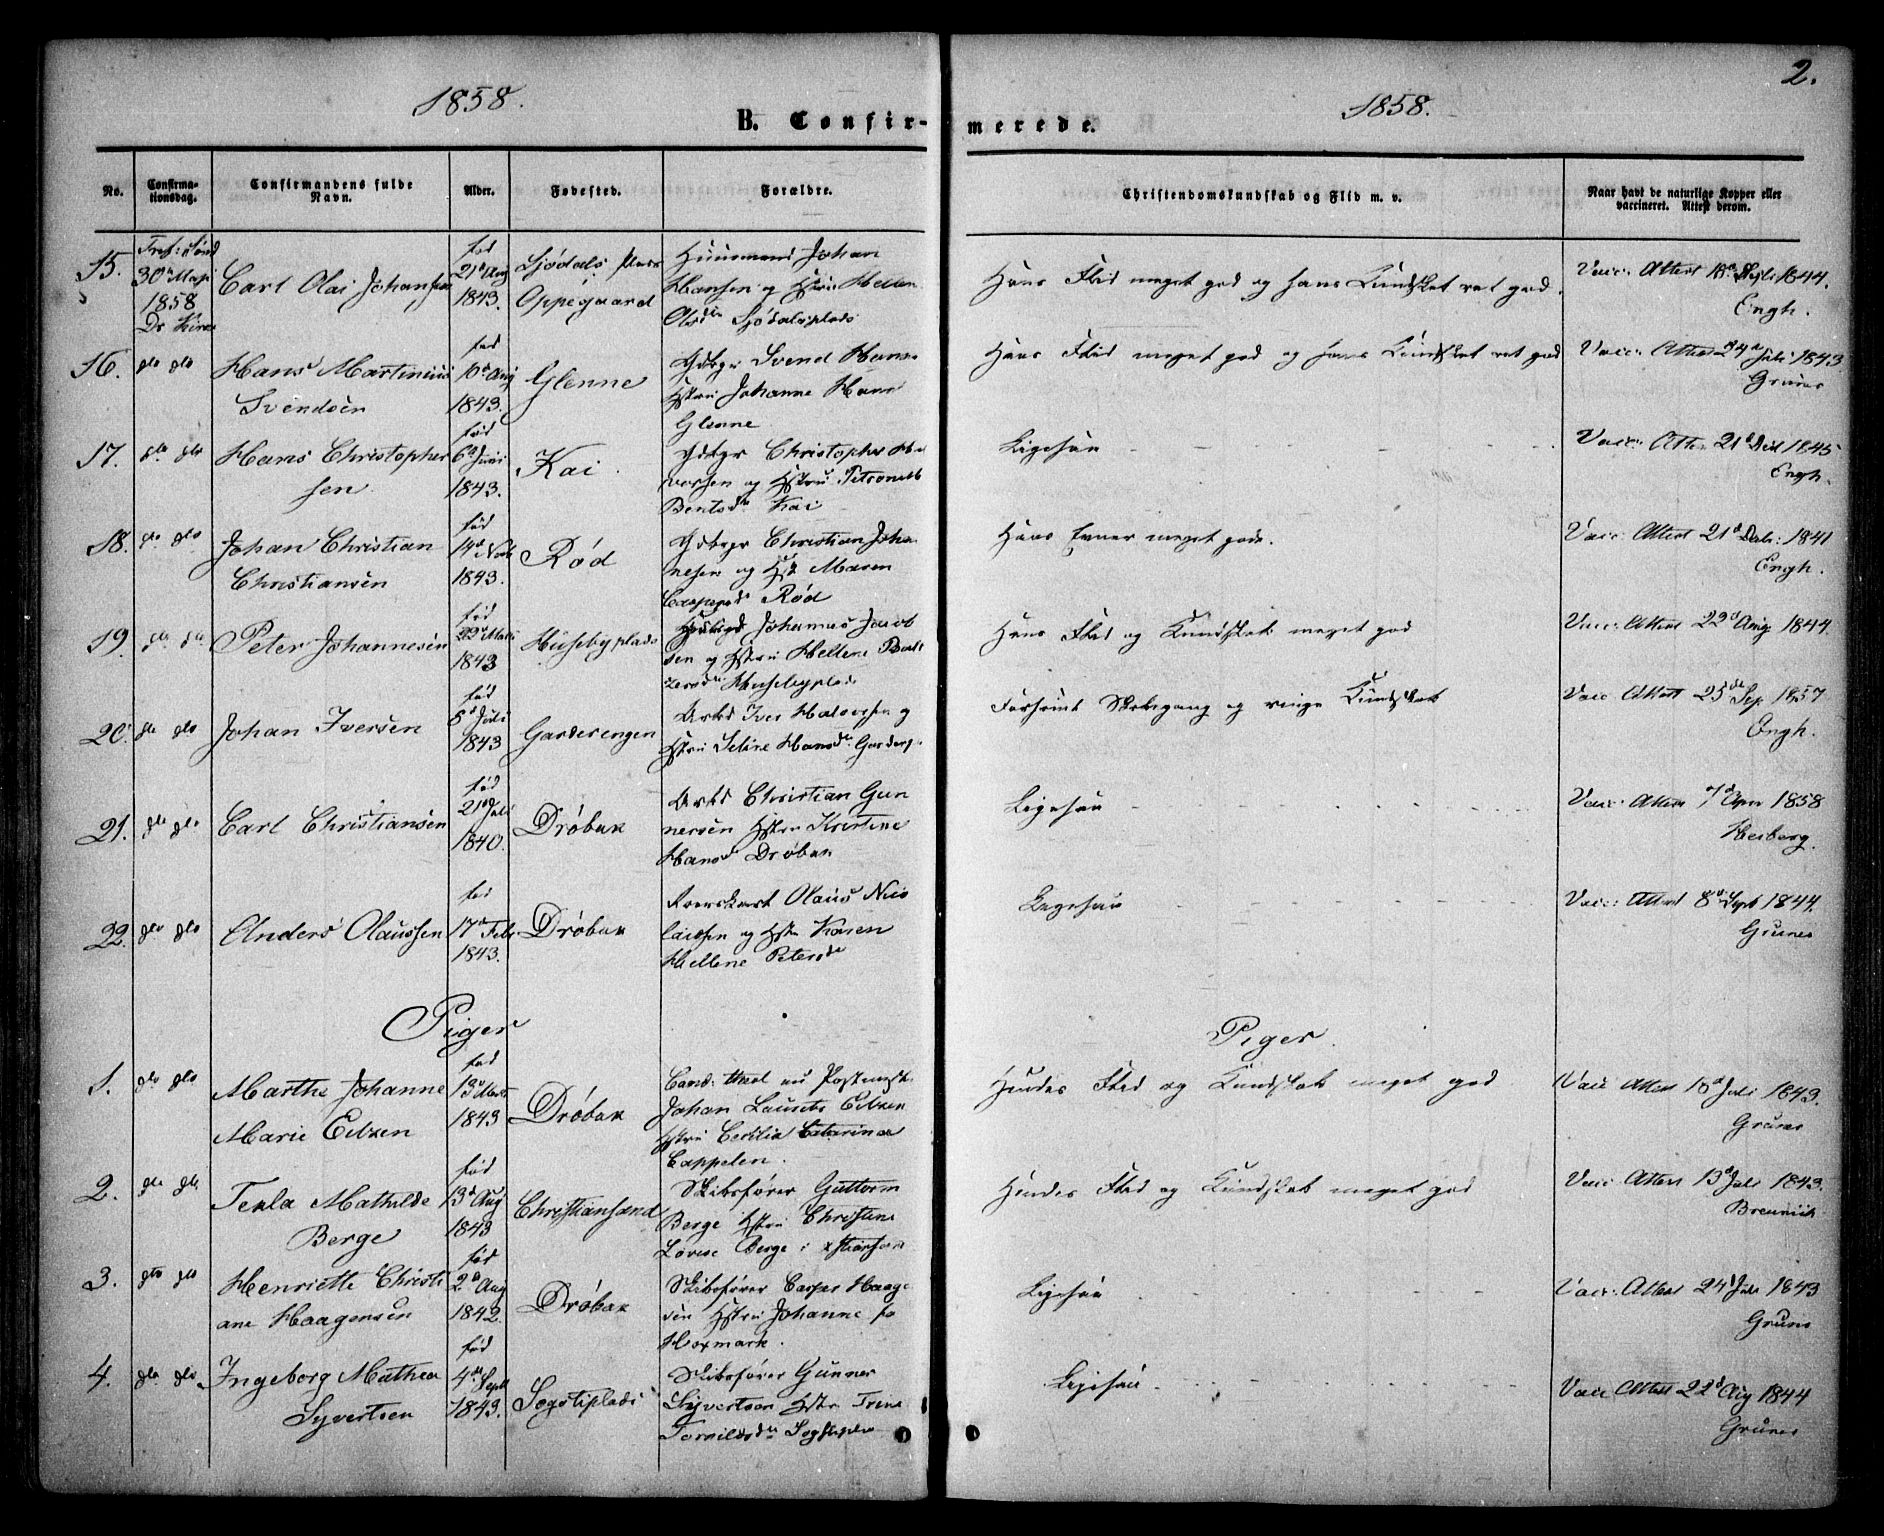 2.
1858. 1858.
B. Confirmerede.
No. Confirmationsdag. Confirmandens fulde Navn. Alder. Fødested. Forældre. Christendomskundskab og Flid m. v. Naar havt de naturlige Kopper eller vaccineret. Attest derom.
15. 30 Mai 1858 Carl Olai Johansen fød 21de Aug 1843. Sjødals plads Oppegaard Huusmand Johan Hansen og Hstru Hellene Olsdtr Sjødalsplads Hans Flid meget god og hans Kundskab ret god. Vacc: Attest 1844. Engh.
16. do do Hans Martinius Svendsen fød 10de Aug 1843. Glenne Gdbgr Svend Hans Hstru Johanne Hans Glenne Hans Flid meget god og hans Kundskab ret god Vacc: Attest 24de Juli 1843 Gruner
17. do do Hans Christophersen fød 6te Juni 1843. Kai. Gdbgr Christopher Halvorsen og Hstru Petronelle Bentsdtr Kai Ligesaa Vacc: Attest 21de Dec 1845 Engh.
18. do do Johan Christian Christiansen fød 14de 1843. Rød Gdbgr Christian Johannesen og Hstr Maren Rød Hans Evner meget gode. Vacc: Attest 21de 1841 Engh.
19. do do Peter Johannesen fød 22de 1843 Husebyplads Johannes Jacobsen og Hstru Hellene Husebyplads Hans Flid og Kundskab meget god Vacc: Attest 22de Aug 1844.
20. do do Johan Iversen fød 8de Juli 1843 Garderengen Arbd Iver Halvorsen og Hstru Seline Hansdtr Garderg. Forsømt Skolegang og ringe Kundskab Vacc Attest 25de Sep 1857 Engh.
21. do do Carl Christiansen fød 21de Juli 1840. Drøbak Arbd Christian Gunnersen Hstru Kristine Hansdtr Drøbak Ligesaa Vacc: Attest 7de Apr 1858 Heiberg.
22. do do Anders Olaussen fød 17de Feb. 1843. Drøbak Olaus Nicolaisen og Hstr Karen Hellene Petersdtr Ligesaa Vacc: Attest 8de Sept 1844. Gruner
Piger Piger.
1. do do Marthe Johanne Marie Eitzen fød 13de Marts 1843 Drøbak Cand: theol nu Johan Laurits Eitzen Hstru Cecilia Catarina Cappelen. Hendes Flid og Kundskab meget god Vacc Attest 18de Juli 1843. Gruner
2. do do Tekla Mathilde Berge fød 13de Aug 1843 Christiansand Skibsfører Guttorm Berge Hstru Christine Lovise Berge i Hendes Flid og Kundskab meget god Vacc Attest 13de Juli 1843.
3. do do Henriette Christiane Haagensen fød 2de Aug 1842. Drøbak Skibsfører Casper Haagensen Hstru Johanne Hormark. Ligesaa Vacc: Attest 24de Juli 1843 Gruner
4. do do Ingeborg Mathea Syvertsen fød 4de Sept 1843. Sogstiplads Skibsfører Gunner Syvertsen Hstru Trine Sogstiplds Ligesaa Vacc Attest 22de Aug 1844 Gruner